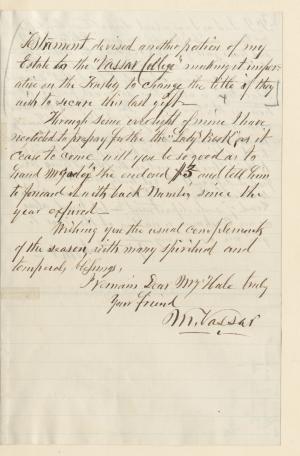 Testament devised another potion of my
Estate to the "Vassar College" making it imper-
ative on the Trustees to change the title if they
wish to secure this last gift—
Through some oversight of mine I have
neglected to prepay for the "Lady's Book" or it
cease to come, will you be so good as to
hand Mr Godey the enclosed $3 and tell him
to forward it with back Numbers since the
year expired—
Wishing you the usual complements
of the season, with many spiritual and
temporal blessings,
I remain Dear Mrs Hale truly
Your friend
M. Vassar